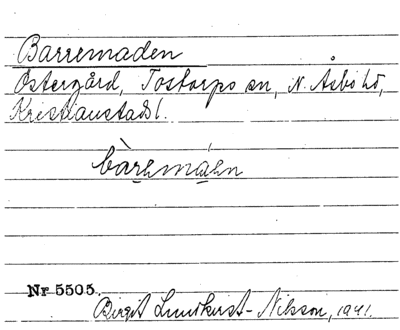 Barremaden
Östergård, Tostarps sn, N. Åsbo hd,
Kristianstads l.
bàrəmáən
Nr 5505.
Birgit Lundkvist-Nilsson, 1941.